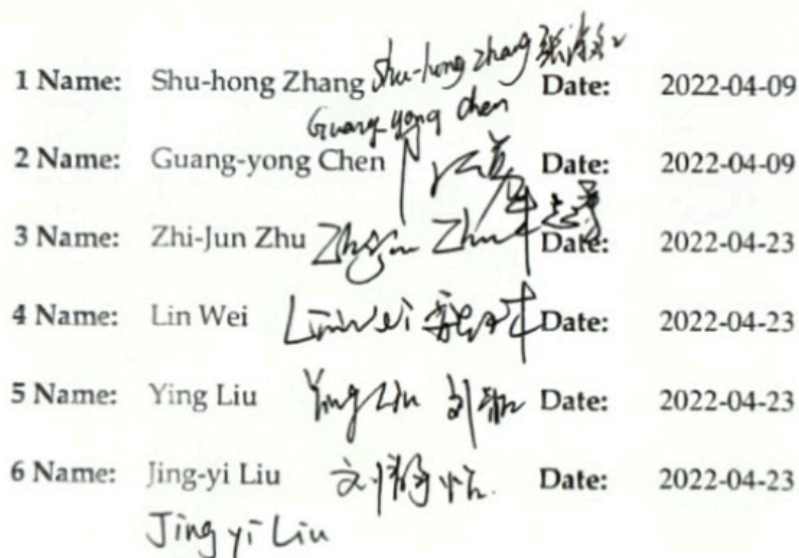 1 Name: Shu-hong Zhang Shu-hong Zhang Date: 2022-04-09
Guang yong chen
2 Name: Guang-yong Chen Date: 2022-04-09
3 Name: Zhi-Jun Zhu Date: 2022-04-23
4 Name: Lin Wei Lin Wei Date: 2022-04-23
5 Name: Ying Liu Ying Liu 刘 Date: 2022-04-23
6 Name: Jing-yi Liu 刘 Date: 2022-04-23
Jing yi Liu